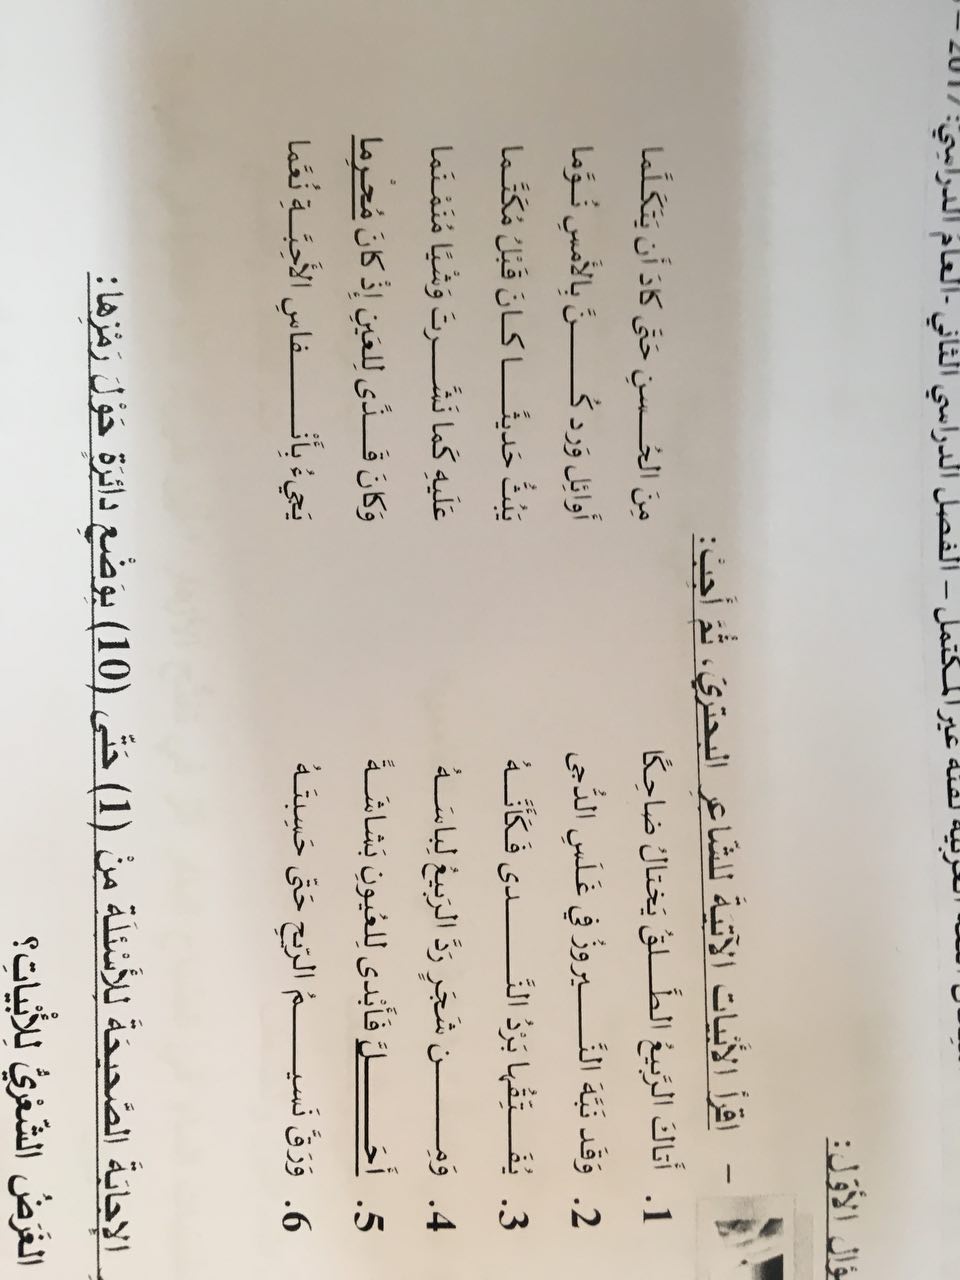 2017 – العام الدراسي: الفصل الدراسي الثاني - لفئة غير المكتمل –
الأول:
– اقرأ الأبيات الآتية للشاعر البحتري، ثم أجب:
1. أَتاكَ الرَّبيعُ الطَّـــلقُ يَختالُ ضاحِكًا مِنَ الحُـــسنِ حَتّى كادَ أَن يَتَكَلَّما
2. وَقَد نَبَّهَ النَّـــيروزُ في غَلَسِ الدُّجى أَوائِلَ وَردٍ كُـــنَّ بِالأَمسِ نُوَّما
3. يُفَـــتِّقُها بَرْدُ النَّـــدى فَكَأَنَّـــهُ يَبُثُّ حَديثًـــا كـانَ قَبْلُ مُكَتَّما
4. وَمِـــن شَجَرٍ رَدَّ الرَبيعُ لِباسَـــهُ عَلَيهِ كَما نَشَّـــرتَ وَشْيًا مُنَمْنَما
5. أَحَـــلَّ فَأَبْدى لِلعُيونِ بَشاشَـــةً وَكانَ قَـــذًى لِلعَينِ إِذْ كانَ مُحْرِما
6. وَرَقَّ نَسيـــمُ الرّيحِ حَتّى حَسِبتَـهُ يَجيءُ بِأَنْـــفاسِ الأَحِبَّـــةِ نُعَّما
الإجابة الصَّحيحَة للأَسْئلَة مِنْ (1) حَتّى (10) بِوَضْعِ دائرَةٍ حَوْلَ رَمْزِها:
الغَرَضُ الشِّعْرِيُّ لِلأَبْياتِ؟